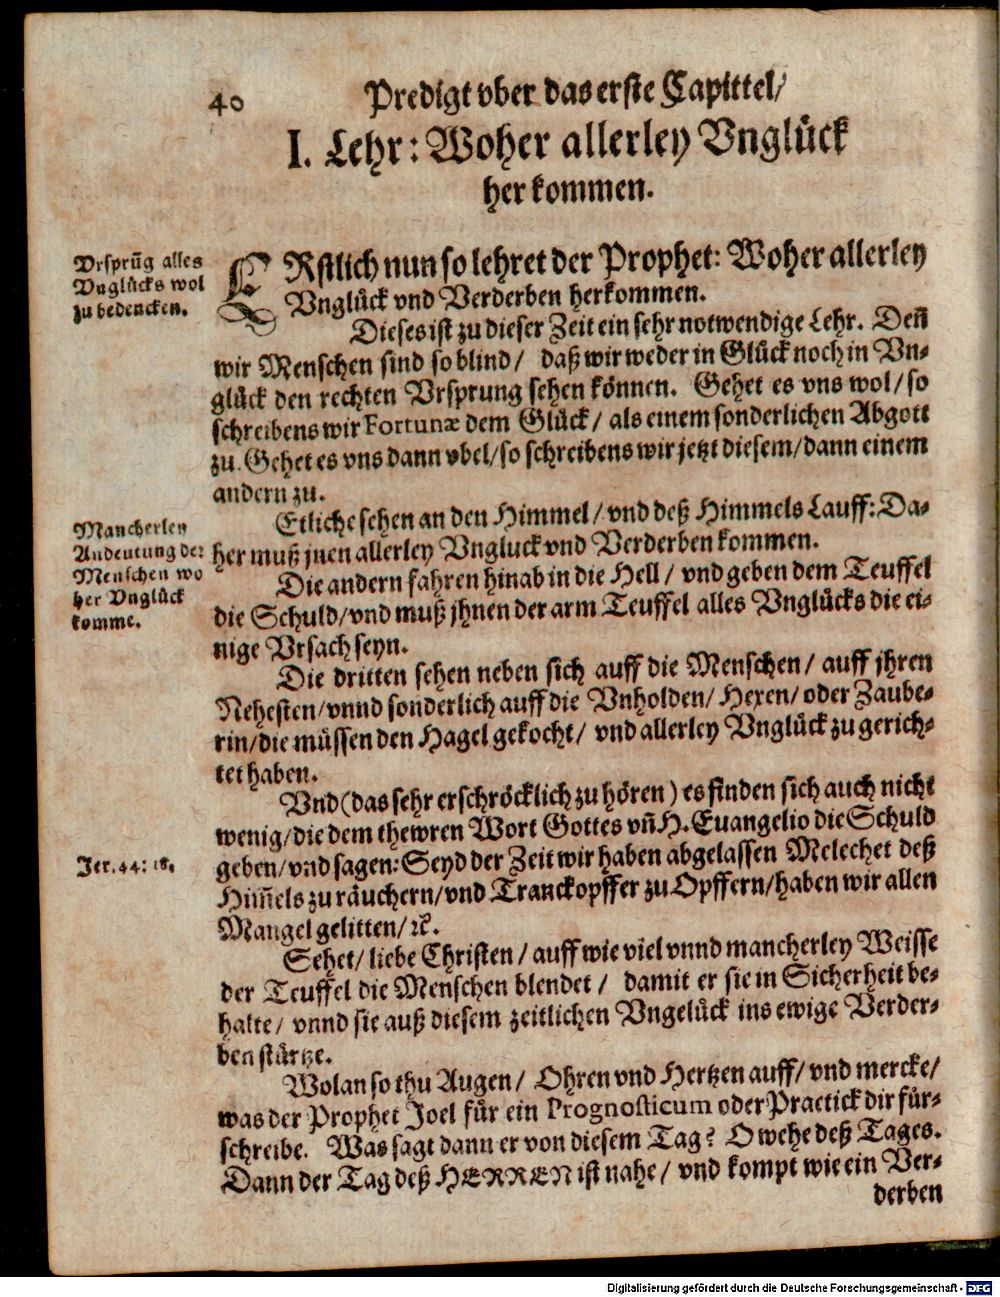 40
Predigt vber das erste Capittel/
I. Lehr: Woher allerley Vnglück
her kommen.
Vrsprūg alles
Vnglücks wol
zu bedencken.
ERstlich nun so lehret der Prophet: Woher allerley
Vnglück vnd Verderben herkommen.
Dieses ist zu dieser Zeit ein sehr notwendige Lehr. Deñ
wir Menschen sind so blind/ daß wir weder in Glück noch in Vn-
glück den rechten Vrsprung sehen können. Gehet es vns wol/ so
schreibens wir Fortunæ dem Glück/ als einem sonderlichen Abgott
zu. Gehet es vns dann vbel/ so schreibens wir jetzt diesem/ dann einem
andern zu.
Mancherley
Andeutung der
Menschen wo
her Vnglück
komme.
Etliche sehen an den Himmel/ vnd deß Himmels Lauff: Da-
her muß jnen allerley Vngluck vnd Verderben kommen.
Die andern fahren hinab in die Hell/ vnd geben dem Teuffel
die Schuld/ vnd muß jhnen der arm Teuffel alles Vnglücks die ei-
nige Vrsach seyn.
Die dritten sehen neben sich auff die Menschen/ auff jhren
Nehesten/ vnnd sonderlich auff die Vnholden/ Hexen/ oder Zaube-
rin/ die müssen den Hagel gekocht/ vnd allerley Vnglück zu gerich-
tet haben.
Vnd (das sehr erschröcklich zu hören) es finden sich auch nicht
wenig/ die dem thewren Wort Gottes vñ H. Euangelio die Schuld
Jer. 44: 18.
geben/ vnd sagen: Seyd der Zeit wir haben abgelassen Melechet deß
Him̃els zu räuchern/ vnd Tranckopffer zu Opffern/ haben wir allen
Mangel gelitten/ ꝛc.
Sehet/ liebe Christen/ auff wie viel vnnd mancherley Weisse
der Teuffel die Menschen blendet/ damit er sie in Sicherheit be-
halte/ vnnd sie auß diesem zeitlichen Vngelück ins ewige Verder-
ben stürtze.
Wolan so thu Augen/ Ohren vnd Hertzen auff/ vnd mercke/
was der Prophet Joel für ein Prognosticum oder Practick dir für-
schreibe. Was sagt dann er von diesem Tag? O wehe deß Tages.
Dann der Tag deß HERREN ist nahe/ vnd kompt wie ein Ver-
derben
Digitalisierung gefördert durch die Deutsche Forschungsgemeinschaft - DFG